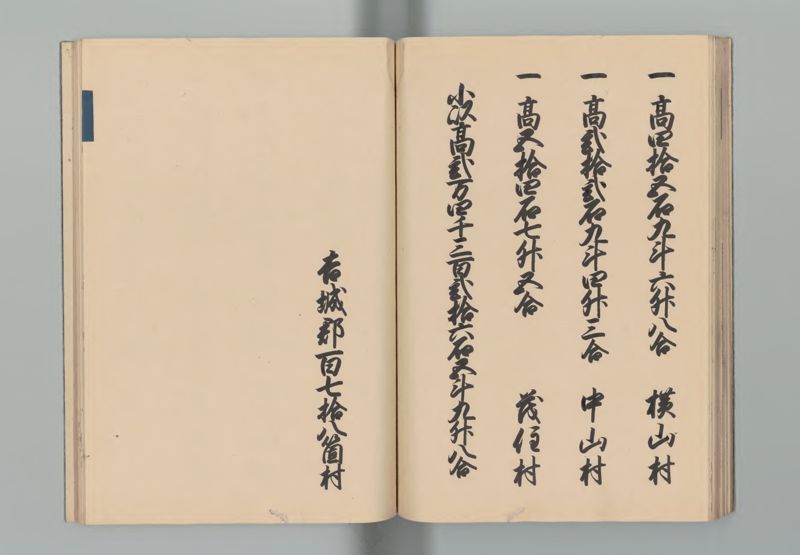 一高四拾五石九斗六升八合 横山村
一高弐拾弐石九斗四升三合 中山村
一高五拾四石七升五合 茂住村
小以高弐万四千三百弐拾六石五斗九升八合
吉城郡百七拾八箇村